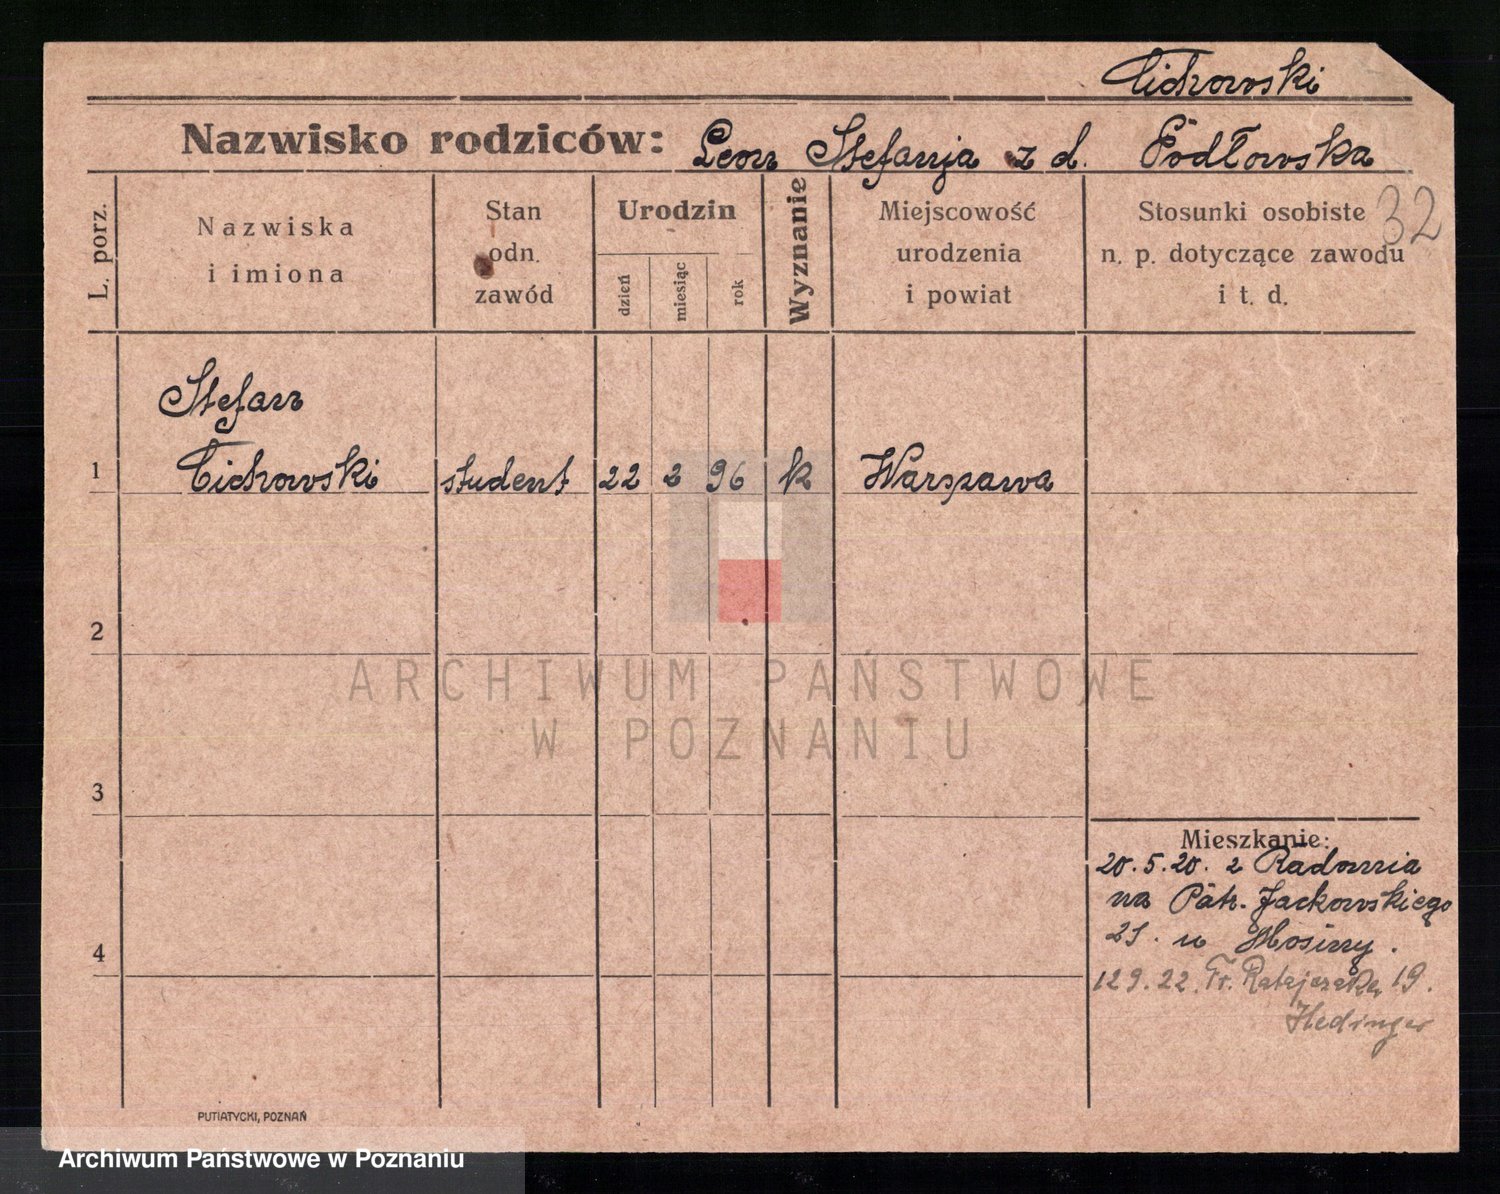 Cichowski
Nazwisko rodziców: Leon Stefanja z d. Födłowska
32
L. porz.
Nazwiska
i imiona
Stan
odn.
zawód
Urodzin
dzień
miesiąc
rok
Wyznanie
Miejscowość
urodzenia
i powiat
Stosunki osobiste
n. p. dotyczące zawodu
i t. d.
Stefan
1 Cichowski student 22 2 96 k Warszawa
2
3
4
Mieszkanie:
20.5.20. z Radomia
na Patr. Jackowskiego
21. u Mosiny.
12 9.22. Fr. Ratajczaka 19.
Hedinger
PUTIATYCKI, POZNAŃ
ARCHIWUM PAŃSTWOWE
W POZNANIU
Archiwum Państwowe w Poznaniu